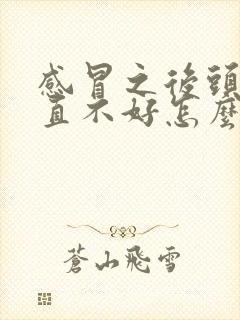 感冒之後頭
直不好怎麼
蒼山飛雪